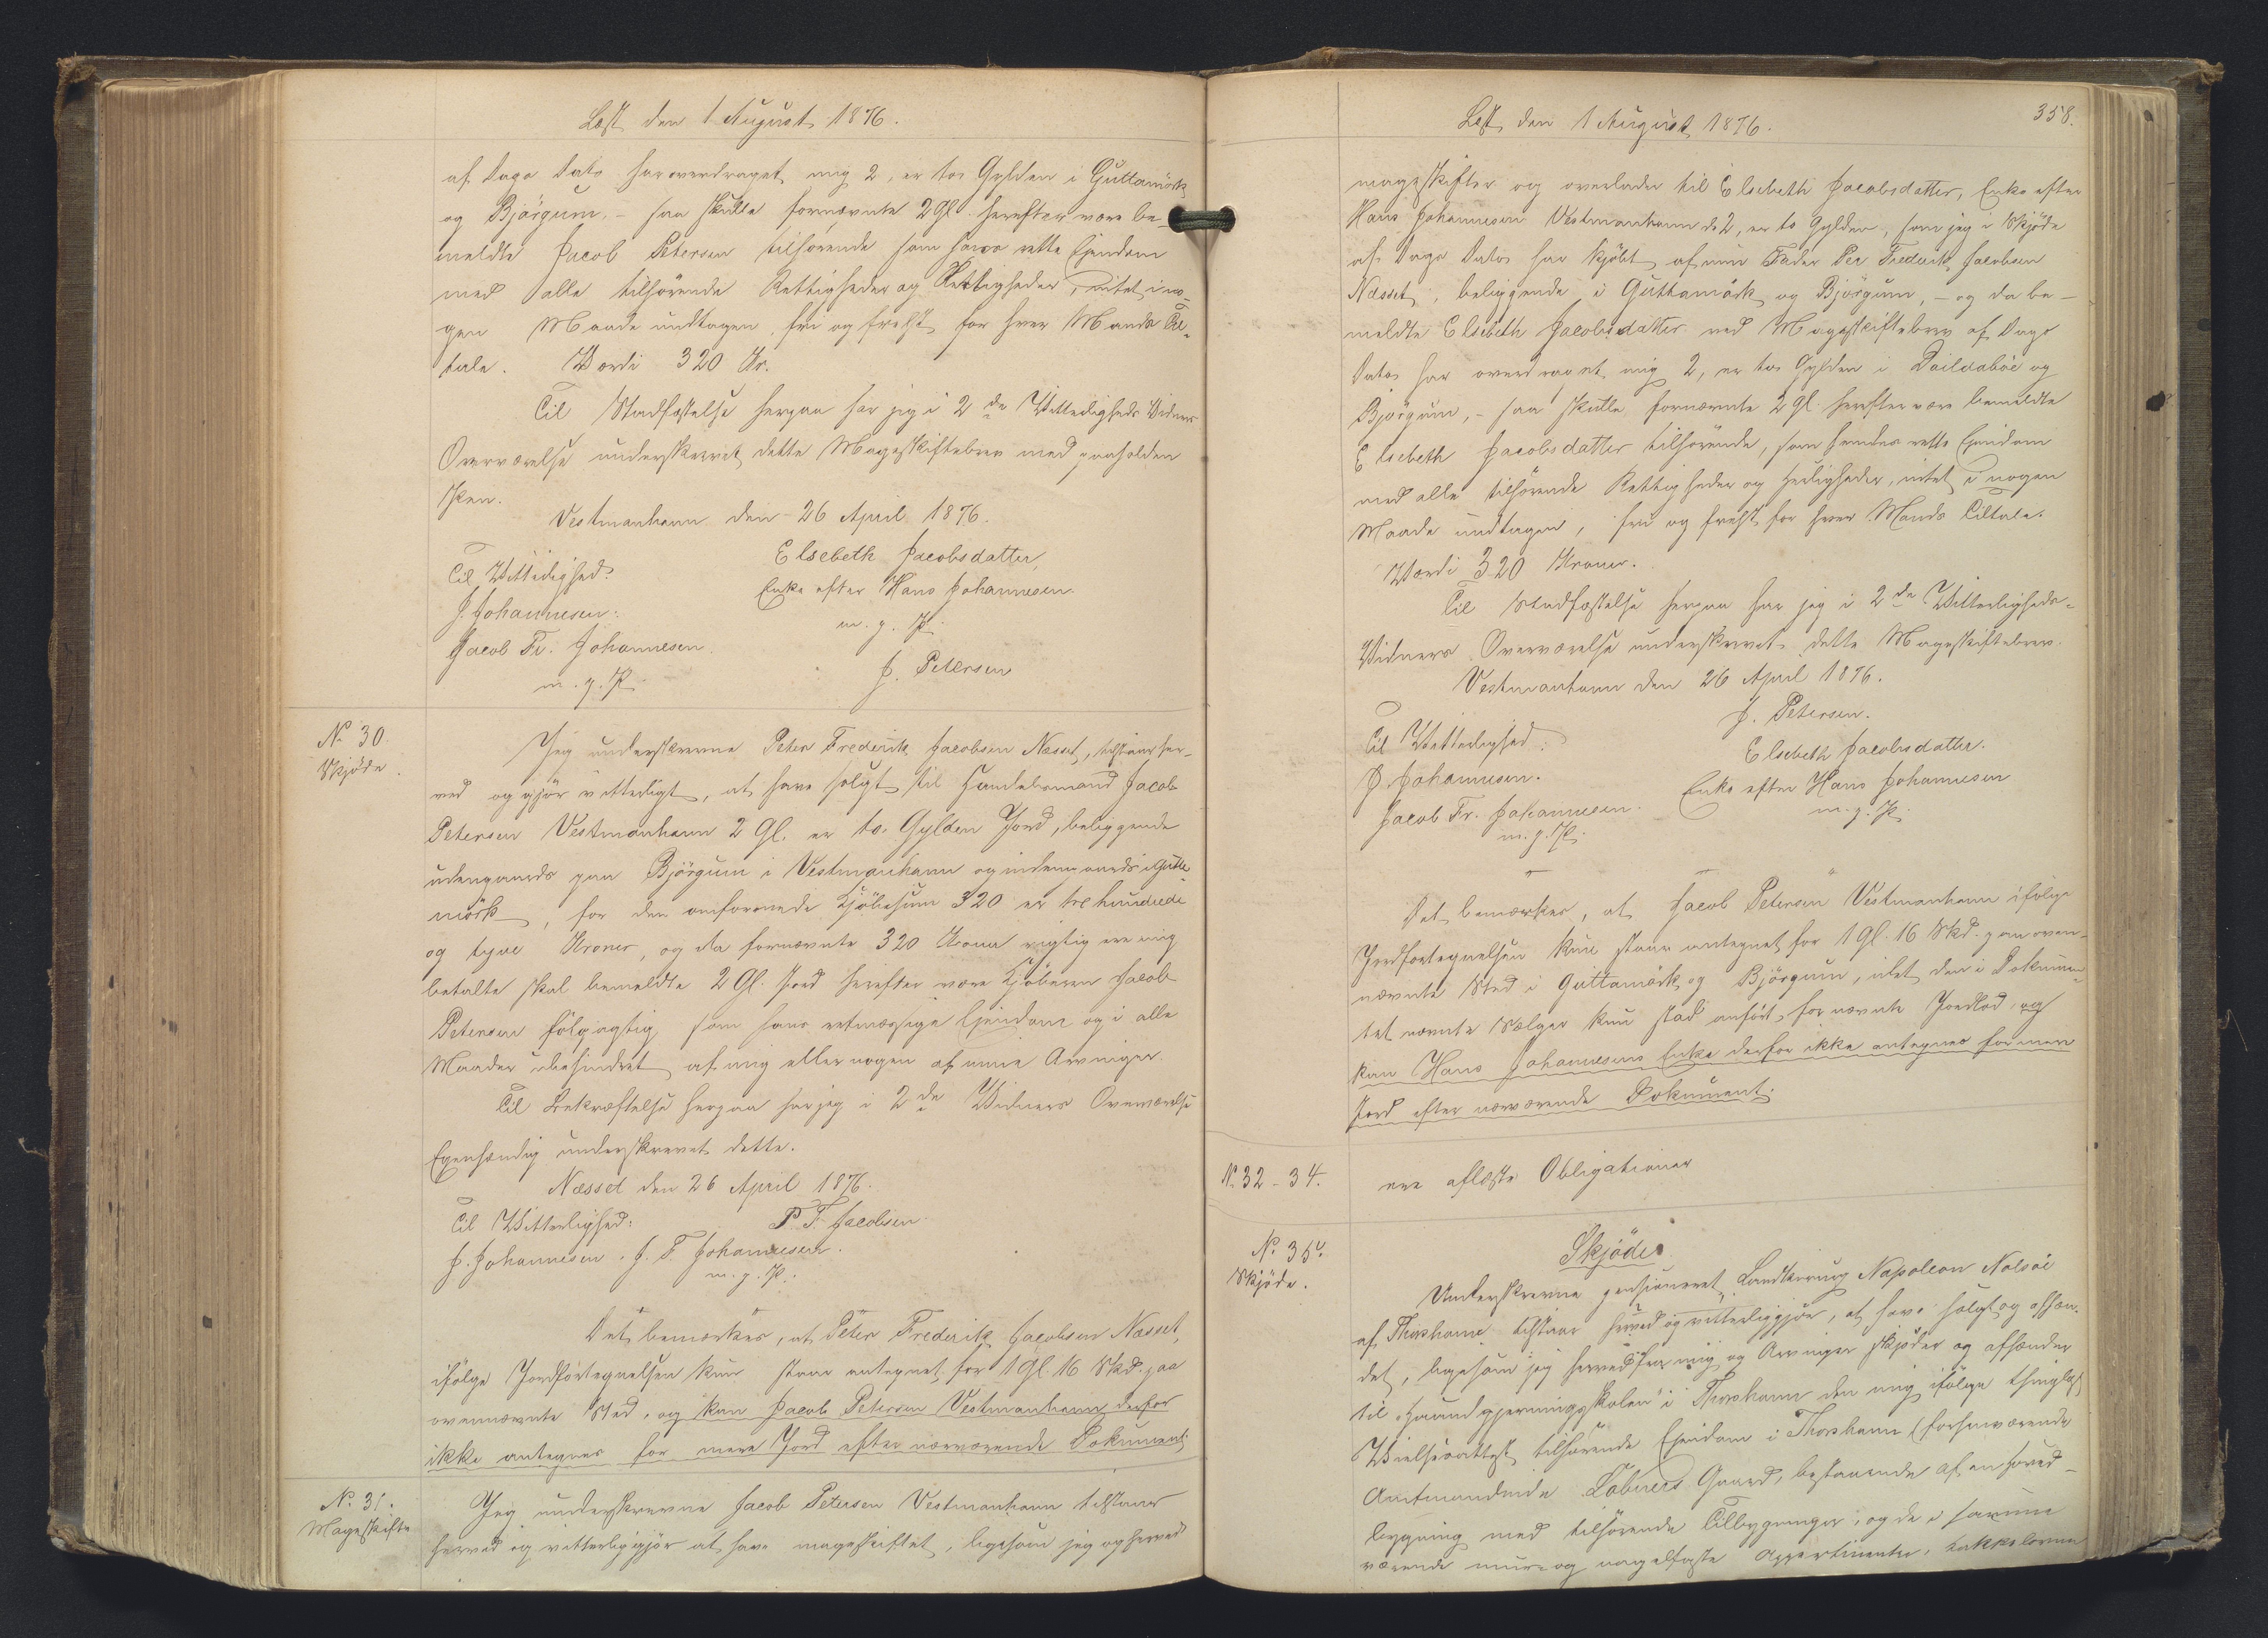 Læst den 1 August 1876.
af Dags Dato har overdraget mig 2, er to Gylden i Guttamörk
og Björgum, – saa skulle fornævnte 2 Gl. herefter være be-
meldte Jacob Petersen tilhørende som hans rette Ejendom
med alle tilhørende Rettigheder og Herligheder, intet i no-
gen Maade undtagen, fri og frelst for hver Mands Til-
tale. Værdi 320 Kr.
Til Stadfæstelse herpaa har jeg i 2de Vitterligheds Vidners
Overværelse underskrevet dette Mageskiftebrev med paaholden
Pen.
Vestmanhavn den 26 April 1876.
Til Vitterlighed: Elsebeth Jacobsdatter,
J. Johannesen. Enke efter Hans Johannesen
Jacob Fr. Johannesen. m. p. P.
m. p. P. J. Petersen
No 30.
Skjöde.
Jeg underskrevne Peter Frederik Jacobsen Næsset, tilstaaer her-
ved og gjör vitterligt, at have solgt til Handelsmand Jacob
Petersen Vestmanhavn 2 Gl. er to Gylden Jord, beliggende
udengaards paa Björgum i Vestmanhavn og indengaards i Gutta-
mörk, for den omforenede Kjöbesum 320 er trehundrede
og tyve Kroner, og da fornævnte 320 Kroner rigtig ere mig
betalte skal bemeldte 2 Gl. Jord herefter være Kjöberen Jacob
Petersen fölgagtig som hans retmæssige Ejendom og i alle
Maader ubehindret af mig eller nogen af mine Arvinger.
Til Bekræftelse herpaa har jeg i 2de Vidners Overværelse
Egenhændig underskrevet dette.
Næsset den 26 April 1876.
Til Vitterlighed: P. F. Jacobsen.
J. Johannesen. J. F. Johannesen.
m. p. P.
Det bemærkes, at Peter Frederik Jacobsen Næsset,
ifölge Jordfortegnelsen kun staaer antegnet for 1 Gl. 16 Skd. paa
ovennævnte Sted, og kan Jacob Petersen Vestmanhavn derfor
ikke antegnes for mere Jord efter nærværende Dokument.
No. 31.
Mageskifte
Jeg underskrevne Jacob Petersen Vestmanhavn tilstaaer
herved og vitterliggjör at have mageskiftet, ligesom jeg og herved
358.
Læst den 1 August 1876.
mageskifter og overlader til Elsebeth Jacobsdatter, Enke efter
Hans Johannesen Vestmanhavn de 2, er to Gylden, som jeg i Skjöde
af Dags Dato har kjöbt af min Fader Per Frederik Jacobsen
Næsset, beliggende i Guttamörk og Björgum, – og da be-
meldte Elsebeth Jacobsdatter ved Mageskiftebrev af Dags
Dato har overdraget mig 2, er to Gylden i Daildaböe og
Björgum, – saa skulle fornævnte 2 Gl. herefter være bemeldte
Elsebeth Jacobsdatter tilhörende, som hendes rette Ejendom
med alle tilhörende Rettigheder og Herligheder, intet i nogen
Maade undtagen, fri og frelst for hver Mands Tiltale.
Værdi 320 Kroner.
Til Stadfæstelse herpaa har jeg i 2de Vitterligheds-
Vidners Overværelse underskrevet dette Mageskiftebrev.
Vestmanhavn den 26 April 1876.
Til Vitterlighed: J. Petersen.
J. Johannesen. Elsebeth Jacobsdatter.
Jacob Fr. Johannesen. Enke efter Hans Johannesen
m. p. P. m. p. P.
Det bemærkes, at Jacob Petersen Vestmanhavn ifölge
Jordfortegnelsen kun staaer antegnet for 1 Gl. 16 Skd. paa oven-
nævnte Sted i Guttamörk og Björgum, idet den i Dokumen-
tet nævnte Sælger kun stod anfört for nævnte Jordlod, og
kan Hans Johannesens Enke derfor ikke antegnes for mere
Jord efter nærværende Dokument.
No. 32–34. ere aflæste Obligationer
No. 35.
Skjöde.
Skjöde.
Underskrevne pensioneret Landkirurg Napoleon Nolsöe
af Thorshavn tilstaaer herved og vitterliggjör, at have solgt og afhæn-
det, ligesom jeg herved fra mig og Arvinger skjöder og afhænder
til "Haandgjerningsskolen" i Thorshavn den mig ifölge thinglæst
Vielsesattest tilhörende Ejendom i Thorshavn (forhenværende
Amtmandinde Löbners Gaard), bestaaende af en Hoved-
bygning med tilhörende Tilbygninger, og de i samme
værende mur- og nagelfaste Appertinentier, Kakkelovne